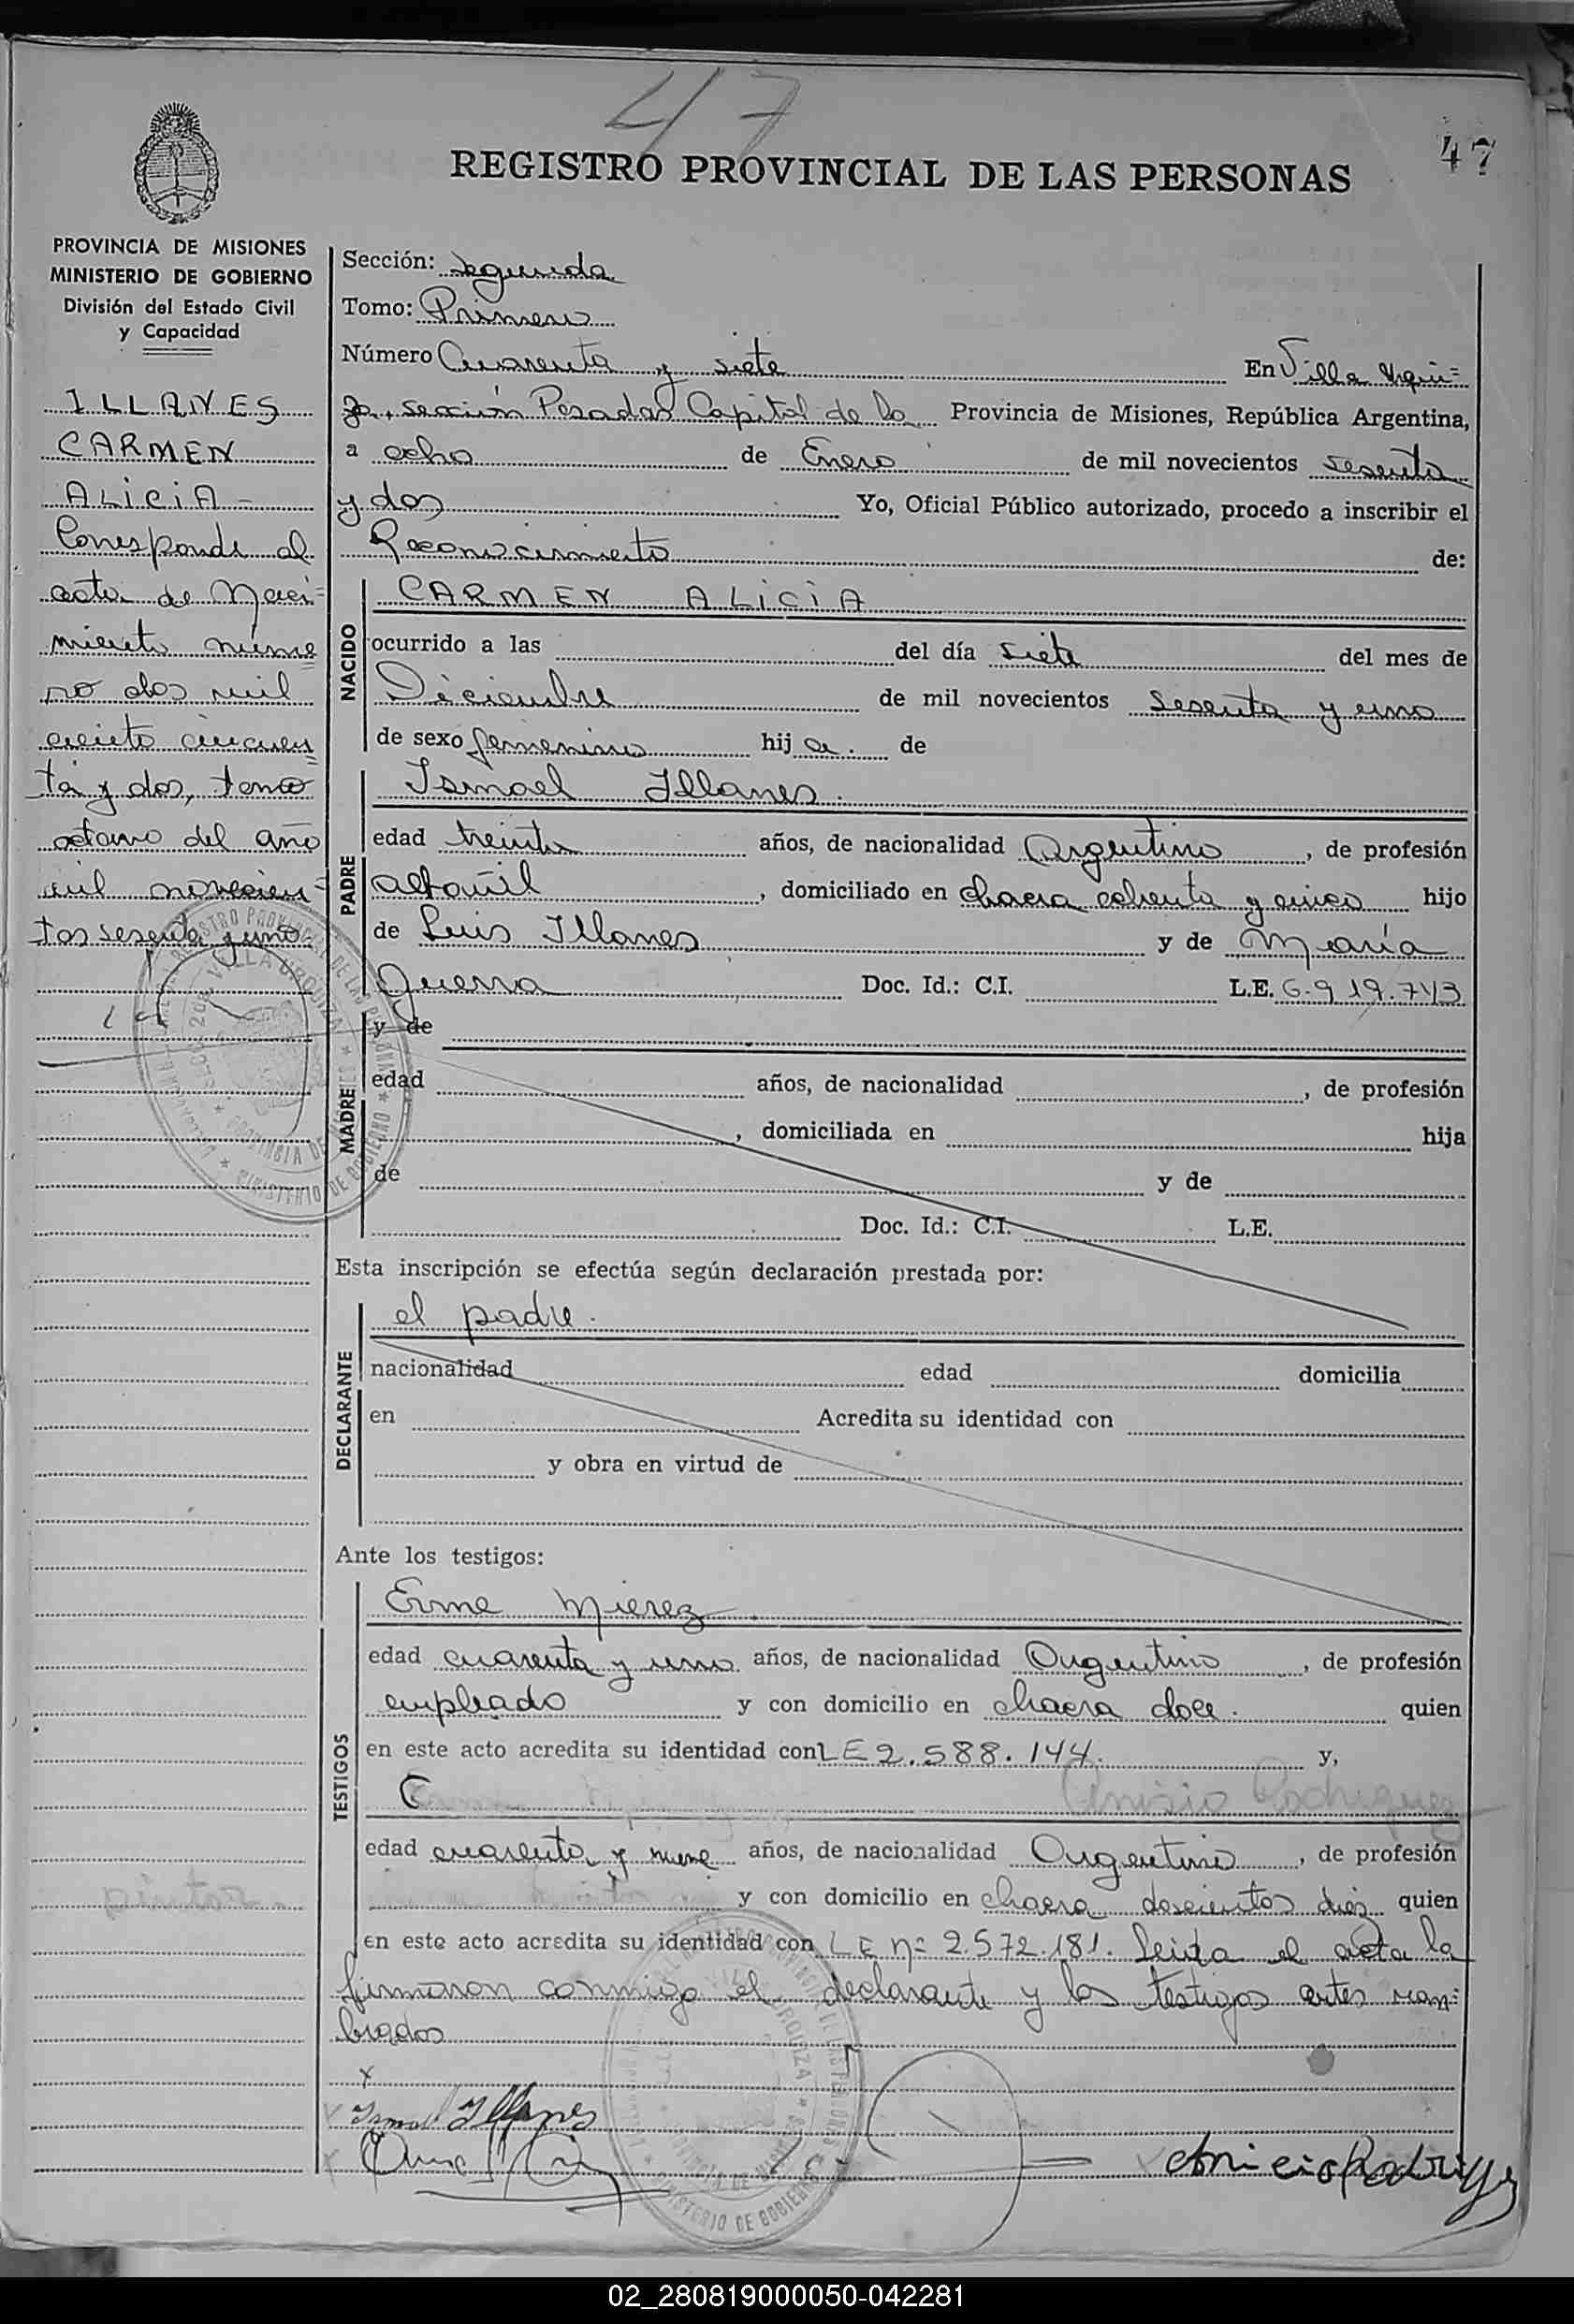 47
47
REGISTRO PROVINCIAL DE LAS PERSONAS
PROVINCIA DE MISIONES
MINISTERIO DE GOBIERNO
División del Estado Civil
y Capacidad
ILLANES
CARMEN
ALICIA -
Corresponde al
acta de Naci-
miento núme=
ro dos mil
ciento cincuen=
ta y dos, tomo
octavo del año
mil novecien=
tos sesenta y uno
Sección: Segunda
Tomo: Primero
Número Cuarenta y siete En Villa Urqui=
za, sección Posadas Capital de la Provincia de Misiones, República Argentina,
a ocho de Enero de mil novecientos sesenta
y dos Yo, Oficial Público autorizado, procedo a inscribir el
Reconocimiento de:
NACIDO
CARMEN ALICIA
ocurrido a las del día siete del mes de
Diciembre de mil novecientos sesenta y uno
de sexo femenino hija. de
PADRE
Ismael Illanes.
edad treinta años, de nacionalidad Argentino, de profesión
albañil, domiciliado en chacra ochenta y cinco hijo
de Luis Illanes y de María
Guerra Doc. Id.: C.I. L.E. 6.919.743
MADRE
y de
edad años, de nacionalidad , de profesión
, domiciliada en hija
de y de
Doc. Id.: C.I. L.E.
Esta inscripción se efectúa según declaración prestada por:
DECLARANTE
el padre.
nacionalidad edad domicilia
en Acredita su identidad con
y obra en virtud de
Ante los testigos:
TESTIGOS
Erme Mierez.
edad cuarenta y uno años, de nacionalidad Argentino, de profesión
empleado y con domicilio en chacra doce. quien
en este acto acredita su identidad con LE 2.588.144. y,
Anisio Rodriguez
edad cuarenta y nueve años, de nacionalidad Argentino, de profesión
pintor y con domicilio en chacra doscientos diez quien
en este acto acredita su identidad con LE nº 2.572.181. Leida el acta la
firmaron conmigo el declarante y los testigos antes nom=
brados
x
Ismael Illanes
Anicio Rodriguez
02_280819000050-042281